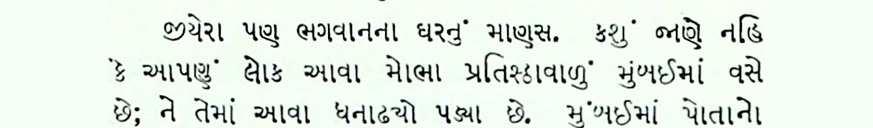 જીયેરા પણ ભગવાનના ઘરનું માણસ. કશું જાણે નહિ
કે આપણું લોક આવા મોભા પ્રતિસ્ઠાવાળું મુંબઈમાં વસે
છે; ને તેમાં આવા ધનાઢ્યો પડ્યા છે. મુંબઈમાં પોતાનો